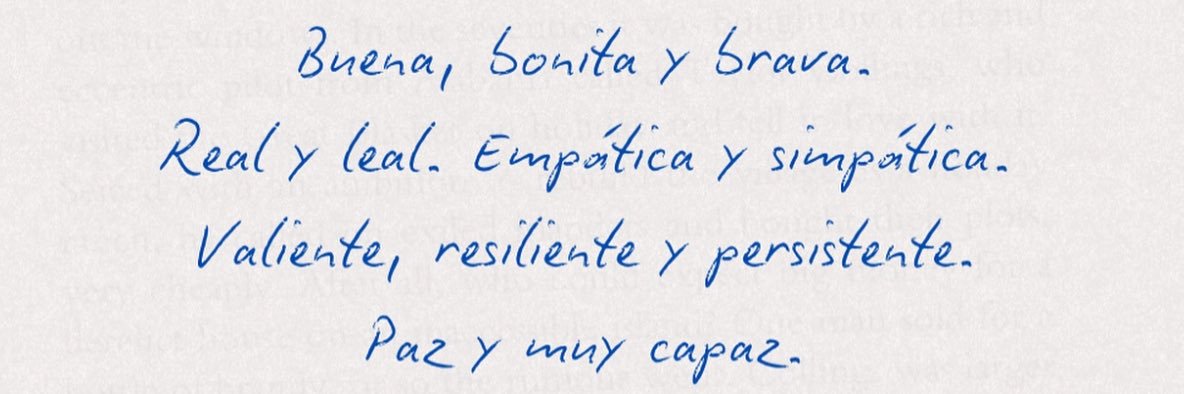 Buena, bonita y brava.
Real y leal. Empática y simpática.
Valiente, resiliente y persistente.
Paz y muy capaz.